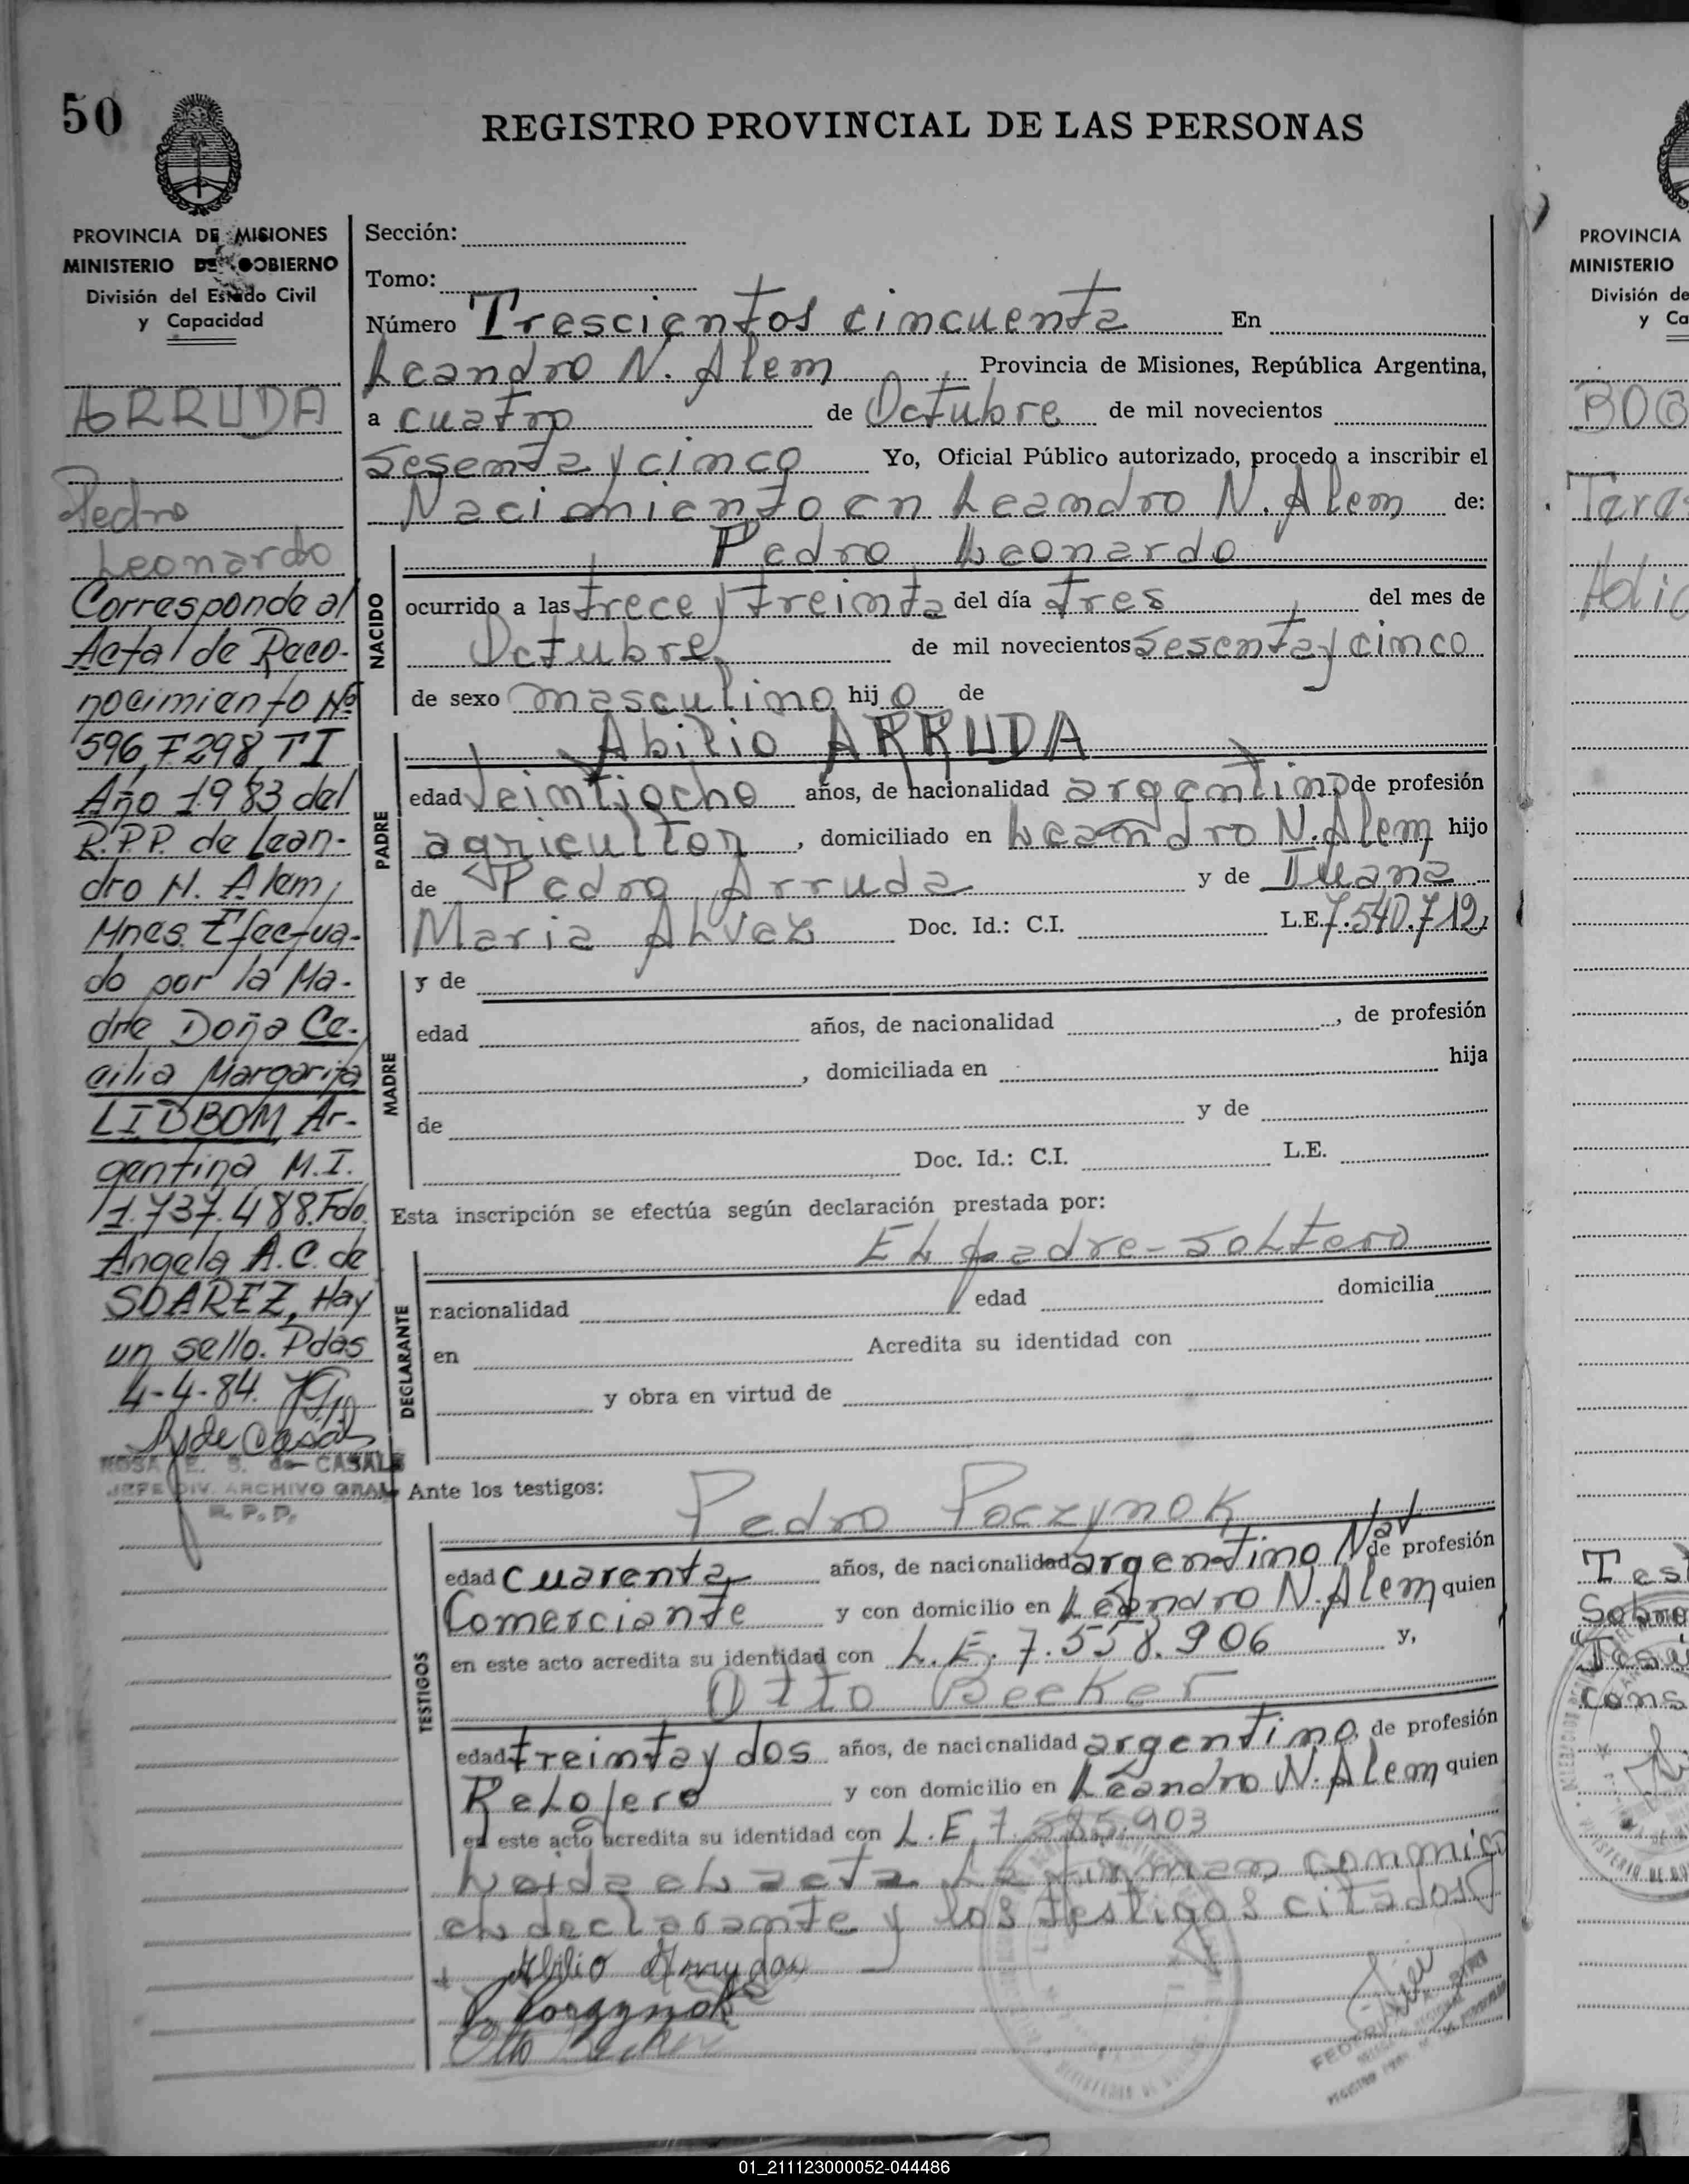 50
REGISTRO PROVINCIAL DE LAS PERSONAS
PROVINCIA DE MISIONES
MINISTERIO DE GOBIERNO
División del Estado Civil
y Capacidad
ARRUDA
Pedro
Leonardo
Corresponde al
Acta de Reco-
nocimiento Nº
596, F 298, T I
Año 1983 del
R.P.P. de Lean-
dro N. Alem,
Mnes. Efectua-
do por la Ma-
dre Doña Ce-
cilia Margarita
LIDBOM, Ar-
gentina, M.I.
1.737.488. Fdo.
Angela A.C. de
SOAREZ, Hay
un sello. Pdas
4-4-84.
ROSA E. S. de CASALS
JEFE DIV. ARCHIVO GRAL
R. P. P.
Sección:
Tomo:
Número Trescientos cincuenta En
Leandro N. Alem, Provincia de Misiones, República Argentina,
a cuatro de Octubre de mil novecientos
sesenta y cinco Yo, Oficial Público autorizado, procedo a inscribir el
Nacimiento en Leandro N. Alem de:
Pedro Leonardo
NACIDO
ocurrido a las trece y treinta del día tres del mes de
Octubre de mil novecientos sesenta y cinco
de sexo masculino hijo de
Abilio ARRUDA
PADRE
edad Veintiocho años, de nacionalidad argentino de profesión
agricultor, domiciliado en Leandro N. Alem hijo
de Pedro Arruda y de Iuana
Maria Alvez Doc. Id.: C.I. L.E. 7.540.712,
MADRE
y de
edad años, de nacionalidad , de profesión
, domiciliada en hija
de y de
Doc. Id.: C.I. L.E.
Esta inscripción se efectúa según declaración prestada por:
El padre-soltero
DECLARANTE
nacionalidad edad domicilia
en Acredita su identidad con
y obra en virtud de
Ante los testigos:
Pedro Poczynok
TESTIGOS
edad cuarenta años, de nacionalidad argentino Nat de profesión
Comerciante y con domicilio en Leandro N. Alem quien
en este acto acredita su identidad con L.E. 7.558.906 y,
Otto Becker
edad treinta y dos años, de nacionalidad argentino de profesión
Relojero y con domicilio en Leandro N. Alem quien
en este acto acredita su identidad con L.E. 7.585.903
Leida el acta la firman conmigo
el declarante y los testigos citados
Abilio Arruda
P. Poczynok
Otto Becker
PROVINCIA
MINISTERIO
División de
y Ca
01_211123000052-044486